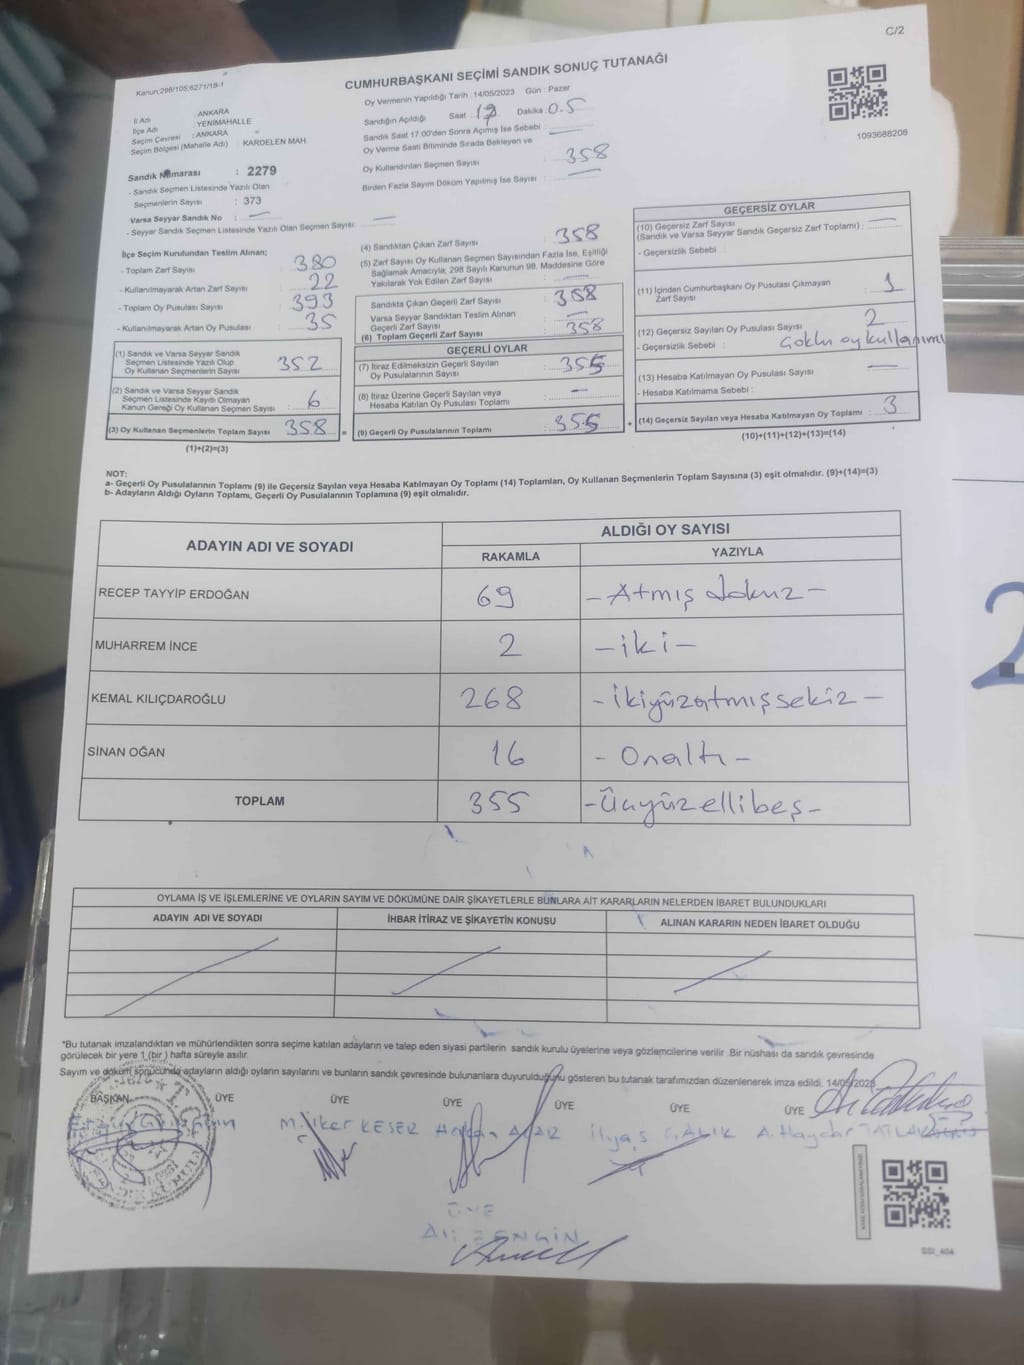 C/2
Kanun:298/105;6271/18-1
CUMHURBAŞKANI SEÇİMİ SANDIK SONUÇ TUTANAĞI
İl Adı : ANKARA
İlçe Adı : YENİMAHALLE
Seçim Çevresi : ANKARA
Seçim Bölgesi (Mahalle Adı) KARDELEN MAH.
Oy Vermenin Yapıldığı Tarih : 14/05/2023 Gün : Pazar
Sandığın Açıldığı Saat : 17 Dakika : 0.5
Sandık Saat 17:00'den Sonra Açılmış İse Sebebi :
Oy Verme Saati Bitiminde Sırada Bekleyen ve
Oy Kullandırılan Seçmen Sayısı 358
Birden Fazla Sayım Döküm Yapılmış İse Sayısı :
1093688208
Sandık Numarası : 2279
- Sandık Seçmen Listesinde Yazılı Olan
Seçmenlerin Sayısı : 373
Varsa Seyyar Sandık No : —
- Seyyar Sandık Seçmen Listesinde Yazılı Olan Seçmen Sayısı : —
İlçe Seçim Kurulundan Teslim Alınan;
- Toplam Zarf Sayısı : 380
- Kullanılmayarak Artan Zarf Sayısı : 22
- Toplam Oy Pusulası Sayısı : 393
- Kullanılmayarak Artan Oy Pusulası : 35
(1) Sandık ve Varsa Seyyar Sandık
Seçmen Listesinde Yazılı Olup
Oy Kullanan Seçmenlerin Sayısı : 352
(2) Sandık ve Varsa Seyyar Sandık
Seçmen Listesinde Kayıtlı Olmayan
Kanun Gereği Oy Kullanan Seçmen Sayısı : 6
(3) Oy Kullanan Seçmenlerin Toplam Sayısı : 358 =
(1)+(2)=(3)
(4) Sandıktan Çıkan Zarf Sayısı : 358
(5) Zarf Sayısı Oy Kullanan Seçmen Sayısından Fazla İse, Eşitliği
Sağlamak Amacıyla; 298 Sayılı Kanunun 98. Maddesine Göre
Yakılarak Yok Edilen Zarf Sayısı :
Sandıkta Çıkan Geçerli Zarf Sayısı : 358
Varsa Seyyar Sandıktan Teslim Alınan
Geçerli Zarf Sayısı : —
(6) Toplam Geçerli Zarf Sayısı : 358
GEÇERLİ OYLAR
(7) İtiraz Edilmeksizin Geçerli Sayılan
Oy Pusulalarının Sayısı : 355
(8) İtiraz Üzerine Geçerli Sayılan veya
Hesaba Katılan Oy Pusulası Toplamı : —
(9) Geçerli Oy Pusulalarının Toplamı : 355 +
GEÇERSİZ OYLAR
(10) Geçersiz Zarf Sayısı
(Sandık ve Varsa Seyyar Sandık Geçersiz Zarf Toplamı) : —
- Geçersizlik Sebebi :
(11) İçinden Cumhurbaşkanı Oy Pusulası Çıkmayan
Zarf Sayısı : 1
(12) Geçersiz Sayılan Oy Pusulası Sayısı : 2
- Geçersizlik Sebebi : Çoklu oy kullanımı
(13) Hesaba Katılmayan Oy Pusulası Sayısı : —
- Hesaba Katılmama Sebebi :
(14) Geçersiz Sayılan veya Hesaba Katılmayan Oy Toplamı : 3
(10)+(11)+(12)+(13)=(14)
NOT:
a- Geçerli Oy Pusulalarının Toplamı (9) ile Geçersiz Sayılan veya Hesaba Katılmayan Oy Toplamı (14) Toplamları, Oy Kullanan Seçmenlerin Toplam Sayısına (3) eşit olmalıdır. (9)+(14)=(3)
b- Adayların Aldığı Oyların Toplamı, Geçerli Oy Pusulalarının Toplamına (9) eşit olmalıdır.
ADAYIN ADI VE SOYADI ALDIĞI OY SAYISI
RAKAMLA YAZIYLA
RECEP TAYYİP ERDOĞAN 69 - Atmış dokuz -
MUHARREM İNCE 2 - iki -
KEMAL KILIÇDAROĞLU 268 - ikiyüzatmışsekiz -
SİNAN OĞAN 16 - Onaltı -
TOPLAM 355 - Üçyüzellibeş -
OYLAMA İŞ VE İŞLEMLERİNE VE OYLARIN SAYIM VE DÖKÜMÜNE DAİR ŞİKAYETLERLE BUNLARA AİT KARARLARIN NELERDEN İBARET BULUNDUKLARI
ADAYIN ADI VE SOYADI İHBAR İTİRAZ VE ŞİKAYETİN KONUSU ALINAN KARARIN NEDEN İBARET OLDUĞU
"Bu tutanak imzalandıktan ve mühürlendikten sonra seçime katılan adayların ve talep eden siyasi partilerin sandık kurulu üyelerine veya gözlemcilerine verilir .Bir nüshası da sandık çevresinde
görülecek bir yere 1 (bir ) hafta süreyle asılır.
Sayım ve döküm sonucunda adayların aldığı oyların sayılarını ve bunların sandık çevresinde bulunanlara duyurulduğunu gösteren bu tutanak tarafımızdan düzenlenerek imza edildi. 14/05/2023
BAŞKAN ÜYE ÜYE ÜYE ÜYE ÜYE ÜYE
M. İlker KESER İlyaş ÇALIK A. Haydar
ÜYE
Ali ZENGİN
SSI_404
2.